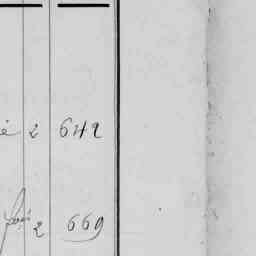 2 642
2 669